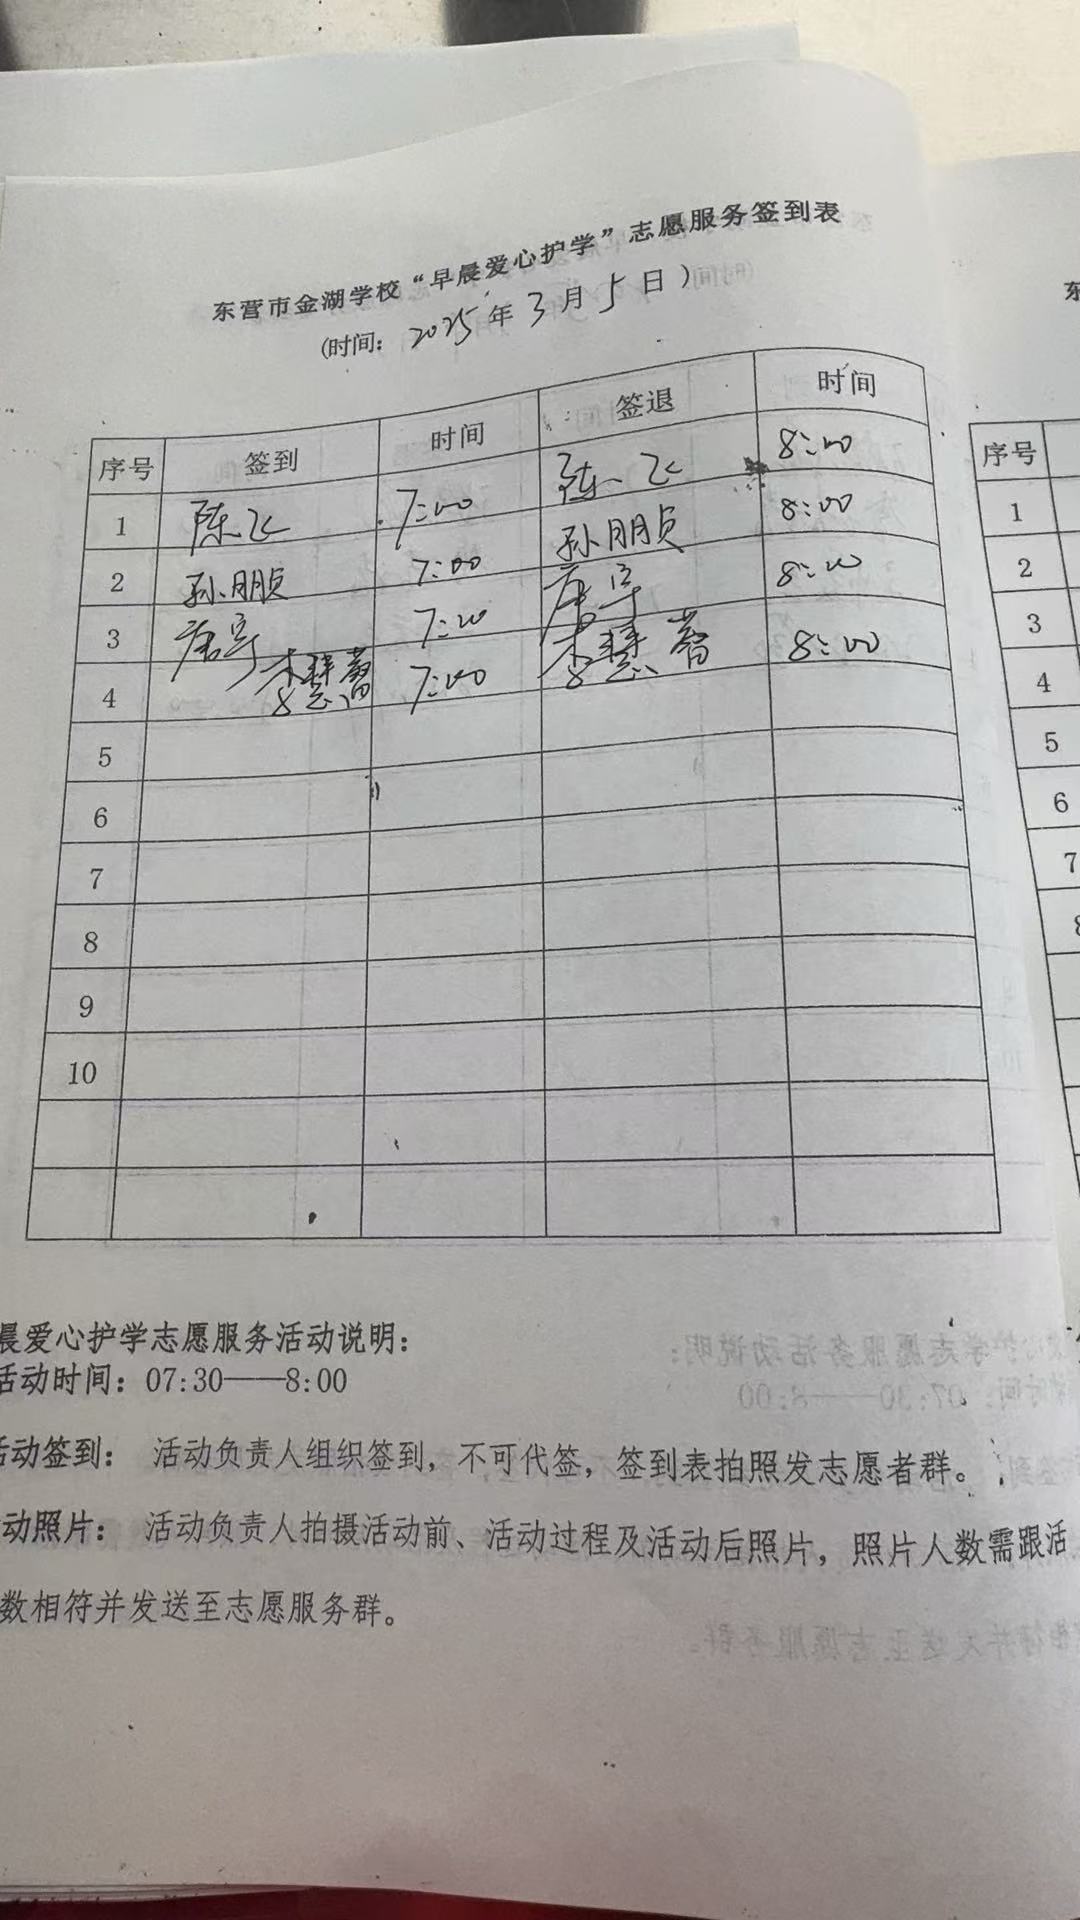 东营市金湖学校“早晨爱心护学”志愿服务签到表
(时间: 2025年3月5日)
序号 签到 时间 签退 时间
1 陈飞 7:00 陈飞 8:00
2 孙朋贞 7:00 孙朋贞 8:00
3 唐宇 7:00 唐宇 8:00
4 李慧蕾 7:00 李慧 8:00
5
6
7
8
9
10
晨爱心护学志愿服务活动说明:
活动时间: 07:30——8:00
活动签到: 活动负责人组织签到, 不可代签, 签到表拍照发志愿者群。
动照片: 活动负责人拍摄活动前、活动过程及活动后照片, 照片人数需跟活
数相符并发送至志愿服务群。
东
序号
1
2
3
4
5
6
7
8